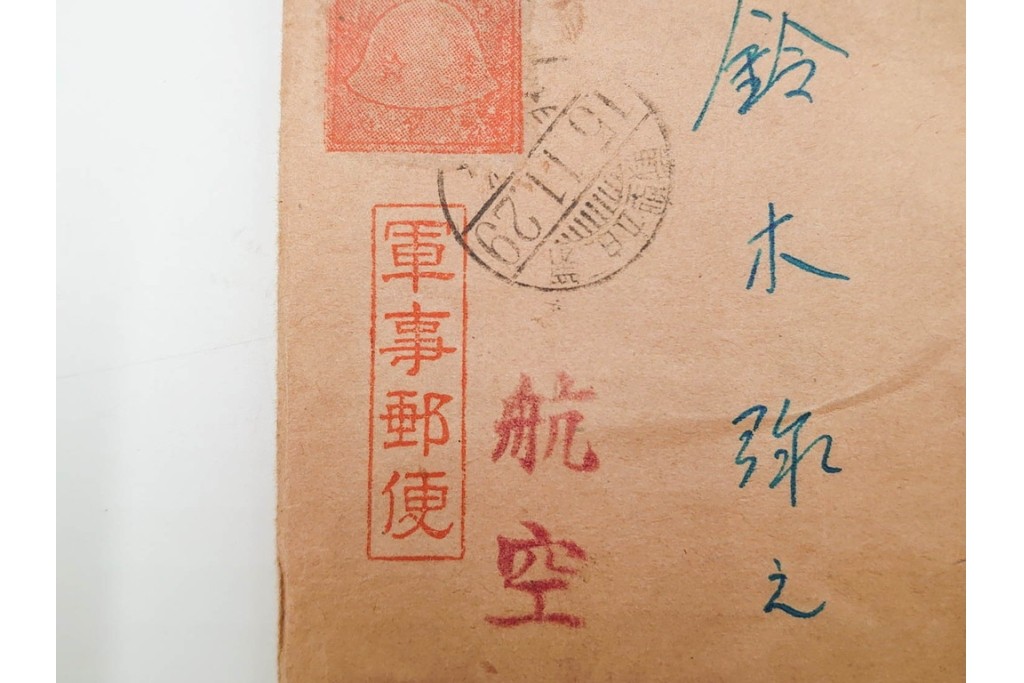 鈴木弥之
航空
軍事郵便
15.11.29